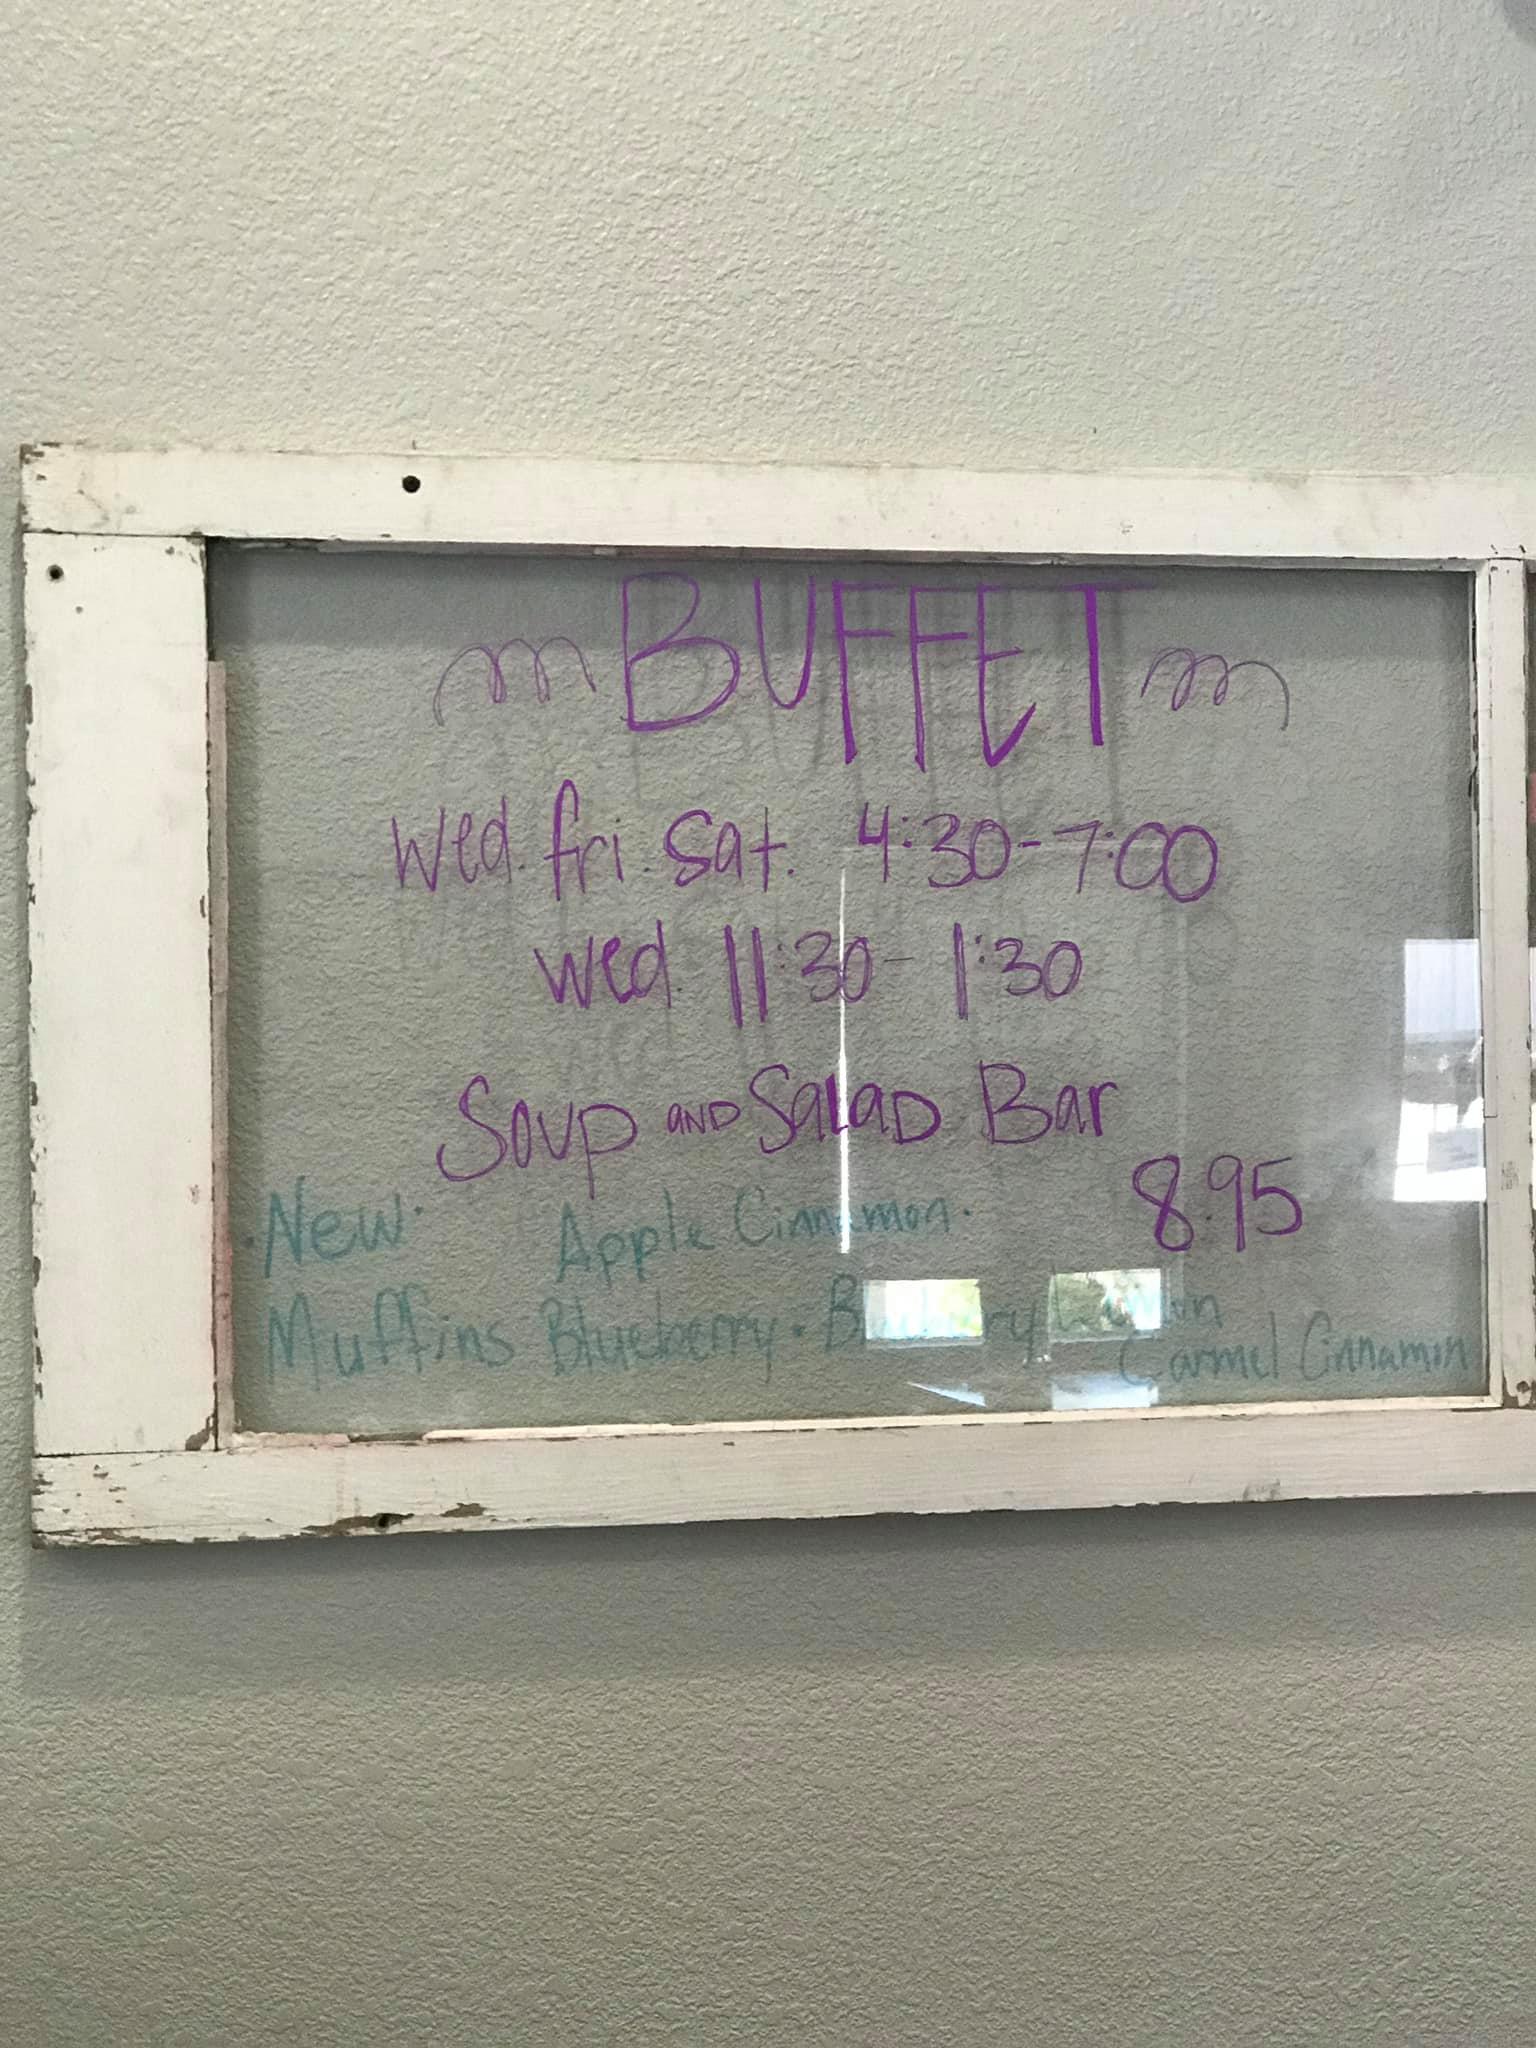 BUFFET
Wed. fri. Sat. 4:30-7:00
wed. 11:30- 1:30
Soup AND SalAD Bar
8.95
·New· Apple Cinnamon·
Muffins Blueberry·
Carmel Cinnamin